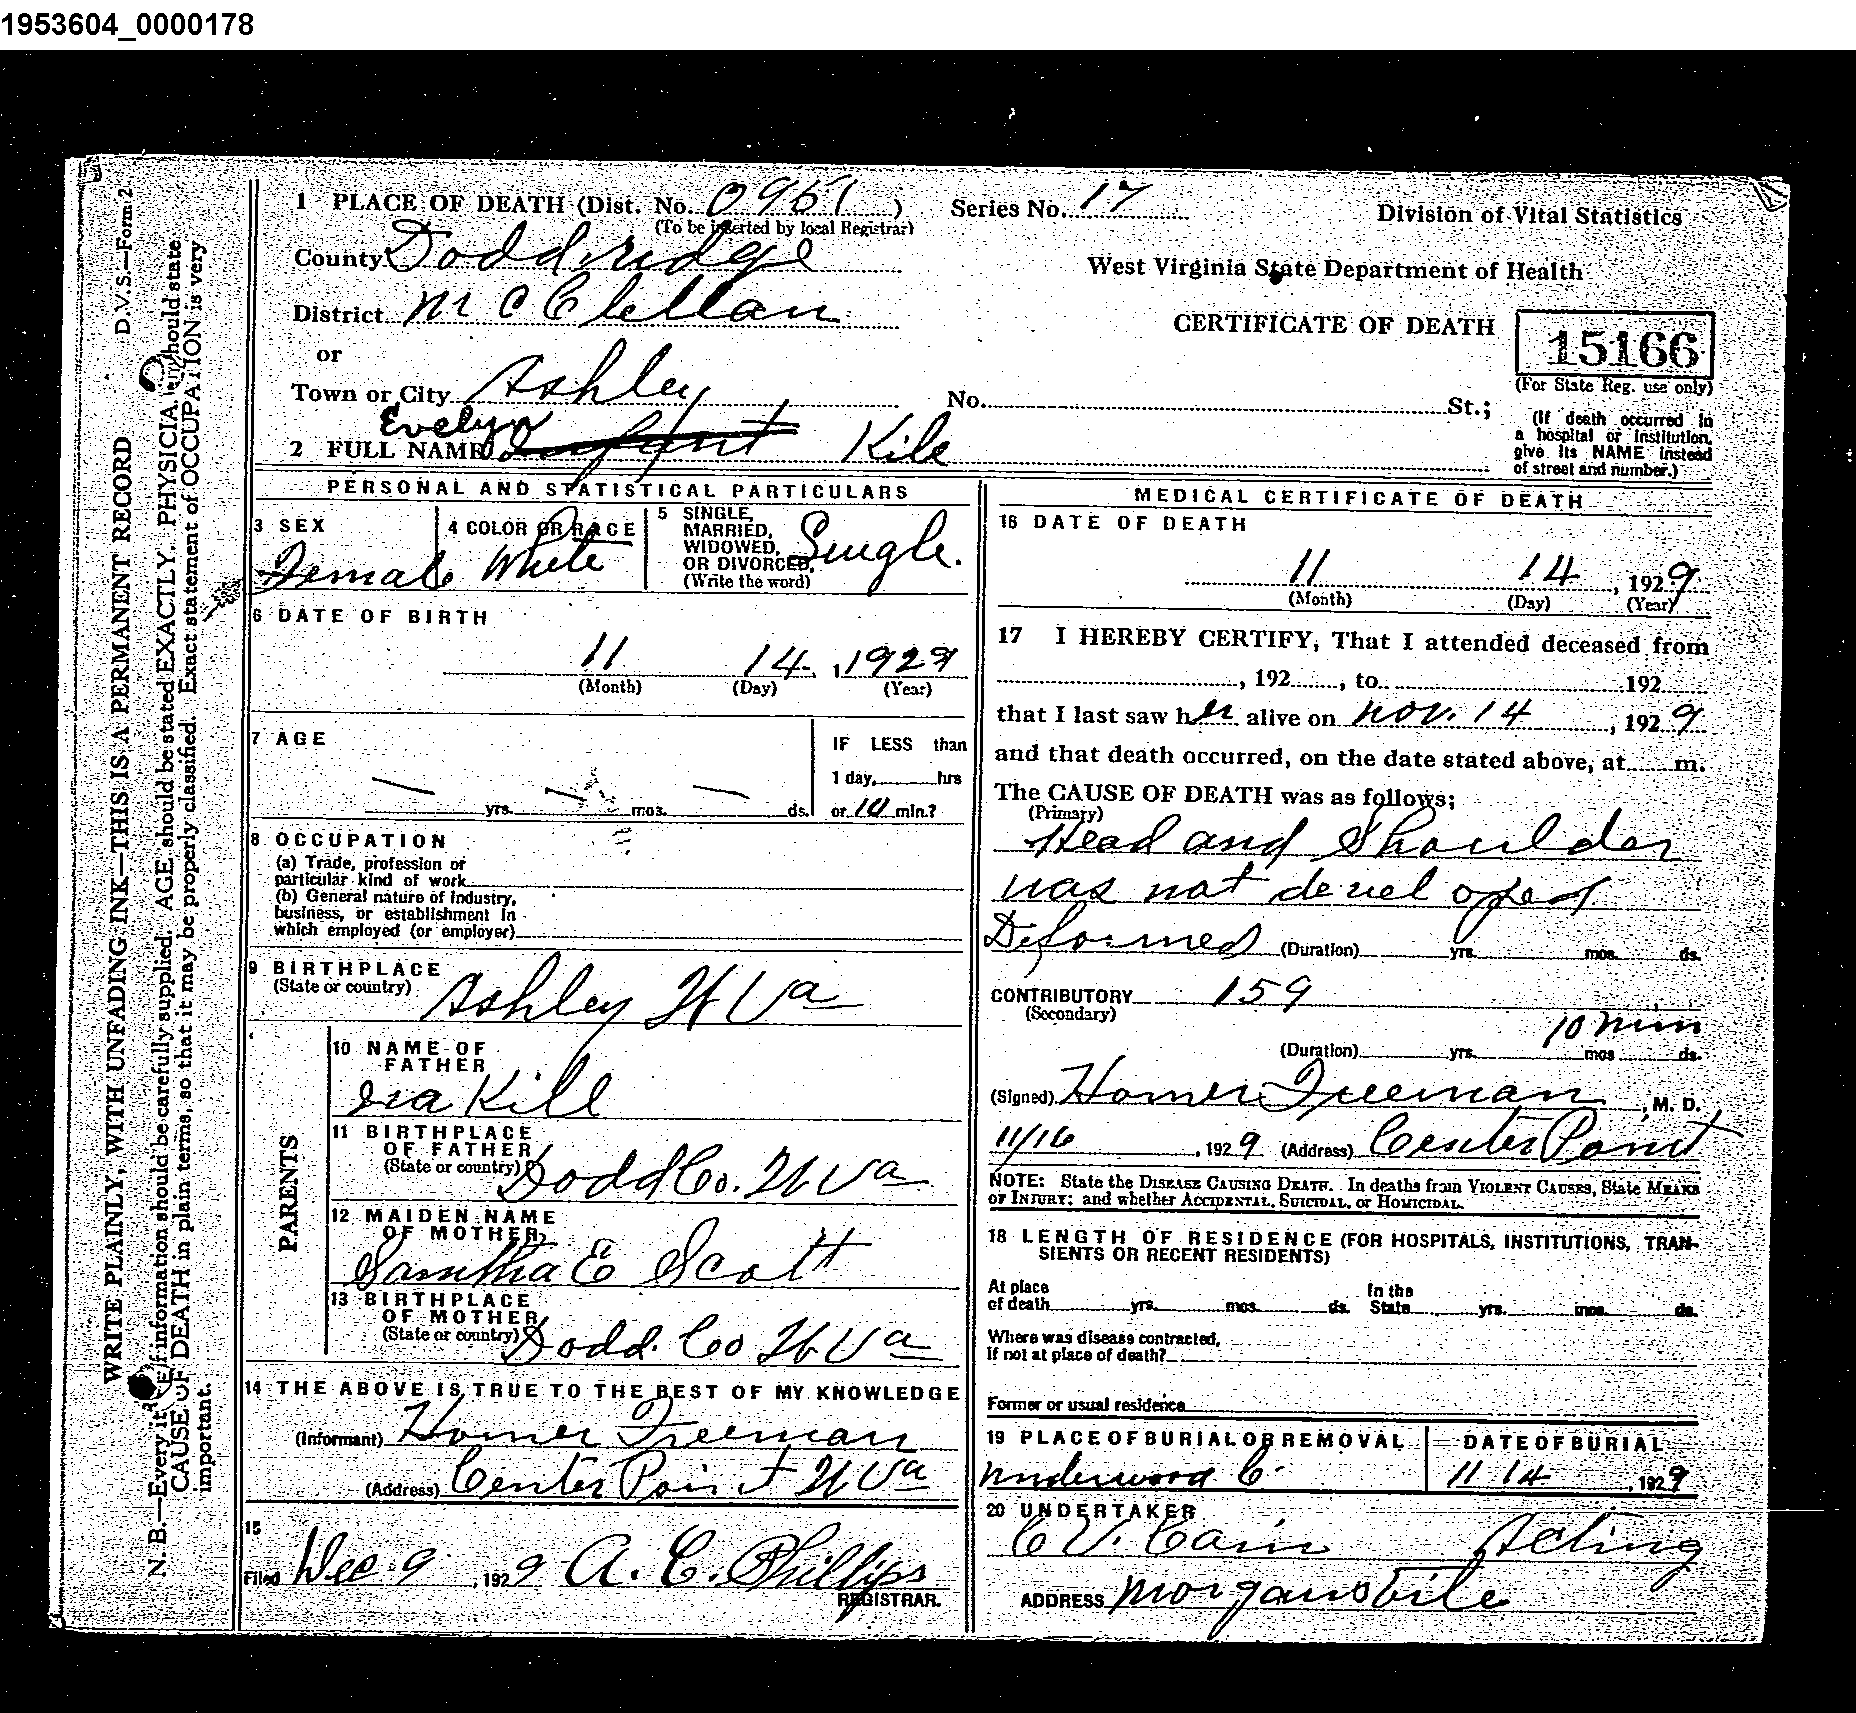 1953604_0000178
D.V.S.—Form 2
WRITE PLAINLY, WITH UNFADING INK—THIS IS A PERMANENT RECORD
N. B.—Every item of information should be carefully supplied. AGE should be stated EXACTLY. PHYSICIANS should state
CAUSE OF DEATH in plain terms, so that it may be properly classified. Exact statement of OCCUPATION is very
important.
1 PLACE OF DEATH (Dist. No. 0951 ) Series No. 17 Division of Vital Statistics
(To be inserted by local Registrar)
County Doddridge
West Virginia State Department of Health
District McClellan
CERTIFICATE OF DEATH 15166
or
(For State Reg. use only)
Town or City Ashley No. St.;
(If death occurred in
a hospital or institution,
give its NAME instead
of street and number.)
Evelyn
2 FULL NAME Infant Kile
PERSONAL AND STATISTICAL PARTICULARS
3 SEX
Female
4 COLOR OR RACE
White
5 SINGLE,
MARRIED,
WIDOWED,
OR DIVORCED,
(Write the word)
Single.
6 DATE OF BIRTH
11 14 , 1929
(Month) (Day) (Year)
7 AGE
yrs. mos. ds.
IF LESS than
1 day, hrs
or 10 min.?
8 OCCUPATION
(a) Trade, profession or
particular kind of work
(b) General nature of industry,
business, or establishment in
which employed (or employer)
9 BIRTHPLACE
(State or country) Ashley W Va
PARENTS
10 NAME OF
FATHER
Ira Kill
11 BIRTHPLACE
OF FATHER
(State or country) Dodd Co. W Va
12 MAIDEN NAME
OF MOTHER
Samtha E Scott
13 BIRTHPLACE
OF MOTHER
(State or country) Dodd. Co W Va
14 THE ABOVE IS TRUE TO THE BEST OF MY KNOWLEDGE
(Informant) Homer Freeman
(Address) Center Point W Va
15
Filed Dec 9 , 1929 A. C. Phillips
REGISTRAR.
MEDICAL CERTIFICATE OF DEATH
16 DATE OF DEATH
11 14 , 1929
(Month) (Day) (Year)
17 I HEREBY CERTIFY, That I attended deceased from
, 192 , to 192
that I last saw her alive on Nov. 14 , 1929
and that death occurred, on the date stated above, at m.
The CAUSE OF DEATH was as follows;
(Primary)
Head and Shoulder
was not developed
Deformed (Duration) yrs. mos. ds.
CONTRIBUTORY 159
(Secondary)
10 min
(Duration) yrs. mos ds.
(Signed) Homer Freeman , M. D.
11/16 , 1929 (Address) Center Point
NOTE: State the DISEASE CAUSING DEATH. In deaths from VIOLENT CAUSES, State MEANS
OF INJURY; and whether ACCIDENTAL, SUICIDAL, or HOMICIDAL.
18 LENGTH OF RESIDENCE (FOR HOSPITALS, INSTITUTIONS, TRAN-
SIENTS OR RECENT RESIDENTS)
At place
of death yrs. mos. ds.
In the
State yrs. mos. ds.
Where was disease contracted,
If not at place of death?
Former or usual residence
19 PLACE OF BURIAL OR REMOVAL
Underwood C.
DATE OF BURIAL
11 14 , 1929
20 UNDERTAKER
C V. Cain Acting
ADDRESS Morgansville